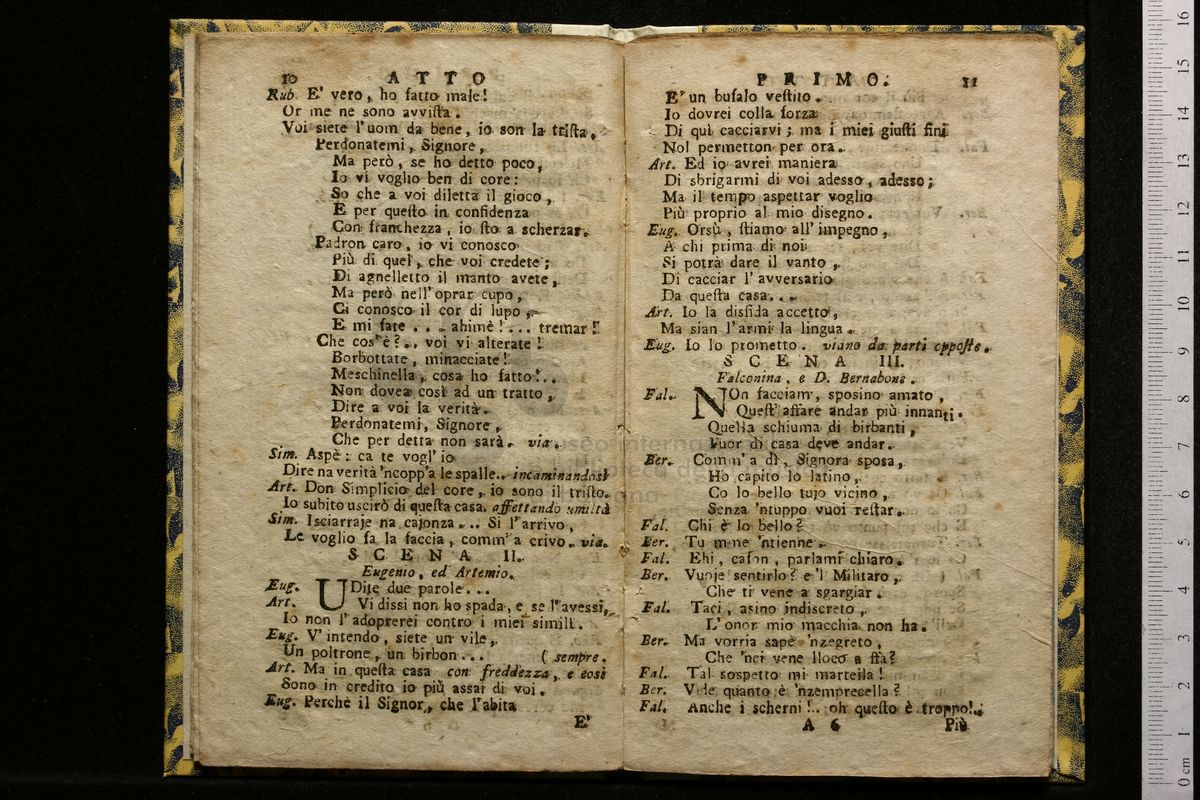 10 ATTO
Rub. E' vero, ho fatto male!
Or me ne sono avvista.
Voi siete l'uom da bene, io son la trista,
Perdonatemi, Signore,
Ma però, se ho detto poco,
Io vi voglio ben di core:
So che a voi diletta il gioco,
E per questo in confidenza
Con franchezza, io sto a scherzar.
Padron caro, io vi conosco
Più di quel, che voi credete;
Di agnelletto il manto avete,
Ma però nell'oprar cupo,
Ci conosco il cor di lupo,
E mi fate ... ahimè! ... tremar!
Che cos'è?.. voi vi alterate!
Borbottate, minacciate!
Meschinella, cosa ho fatto!..
Non dovea così ad un tratto,
Dire a voi la verità.
Perdonatemi, Signore,
Che per detta non sarà. via.
Sim. Aspè: ca te vogl' io
Dire na verità 'ncopp'a le spalle.. incaminandosi
Art. Don Simplicio del core, io sono il tristo.
Io subito uscirò di questa casa. affettando umiltà
Sim. Isciarraje na cajonza... Si l'arrivo,
Le voglio fa la faccia, comm'a crivo. via.
SCENA II.
Eugenio, ed Artemio.
Eug. UDite due parole...
Art. Vi dissi non ho spada, e se l'avessi,
Io non l'adoprerei contro i miei simili.
Eug. V'intendo, siete un vile,
Un poltrone, un birbon... ( sempre.
Art. Ma in questa casa con freddezza, e così
Sono in credito io più assai di voi.
Eug. Perchè il Signor, che l'abita
E'
PRIMO. 11
E' un bufalo vestito.
Io dovrei colla forza
Di quì cacciarvi; ma i miei giusti fini
Nol permetton per ora.
Art. Ed io avrei maniera
Di sbrigarmi di voi adesso, adesso;
Ma il tempo aspettar voglio
Più proprio al mio disegno.
Eug. Orsù, stiamo all'impegno,
A chi prima di noi
Si potrà dare il vanto,
Di cacciar l'avversario
Da questa casa...
Art. Io la disfida accetto,
Ma sian l'armi la lingua.
Eug. Io lo prometto. viano da parti opposte.
SCENA III.
Falconina, e D. Bernabone.
Fal. NOn facciam, sposino amato,
Quest' affare andar più innanti.
Quella schiuma di birbanti,
Fuor di casa deve andar.
Ber. Comm' a dì, Signora sposa,
Ho capito lo latino,
Co lo bello tujo vicino,
Senza 'ntuppo vuoi restar.
Fal. Chi è lo bello?
Ber. Tu mme 'ntienne.
Fal. Ehi, cafon, parlami chiaro.
Ber. Vuoje sentirlo? e'l Militaro,
Che ti vene a sgargiar.
Fal. Taci, asino indiscreto,
L'onor mio macchia non ha.
Ber. Ma vorria sapè 'nzegreto,
Che 'nci vene lloco a ffà?
Fal. Tal sospetto mi martella!
Ber. Vide quanto è 'nzemprecella?
Fal. Anche i scherni!.. oh questo è troppo!..
A 6 Più